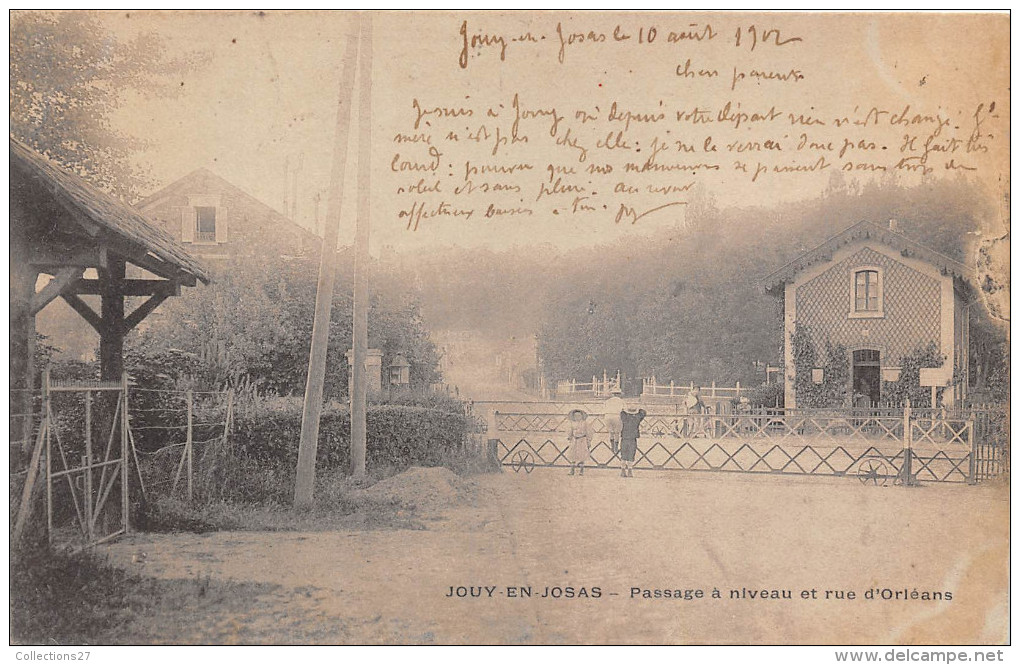 Jouy-en-Josas le 10 août 1902
chers parents
Je suis à Jouy où depuis votre départ rien n'est changé. Gd
mère n'est pas chez elle : je ne le verrai donc pas. Il fait très
lourd : pourvu que nos manœuvres se passent sans trop de
soleil et sans pluie. au revoir
affectueux baisers
JOUY-EN-JOSAS – Passage à niveau et rue d'Orléans
Collections27
www.delcampe.net